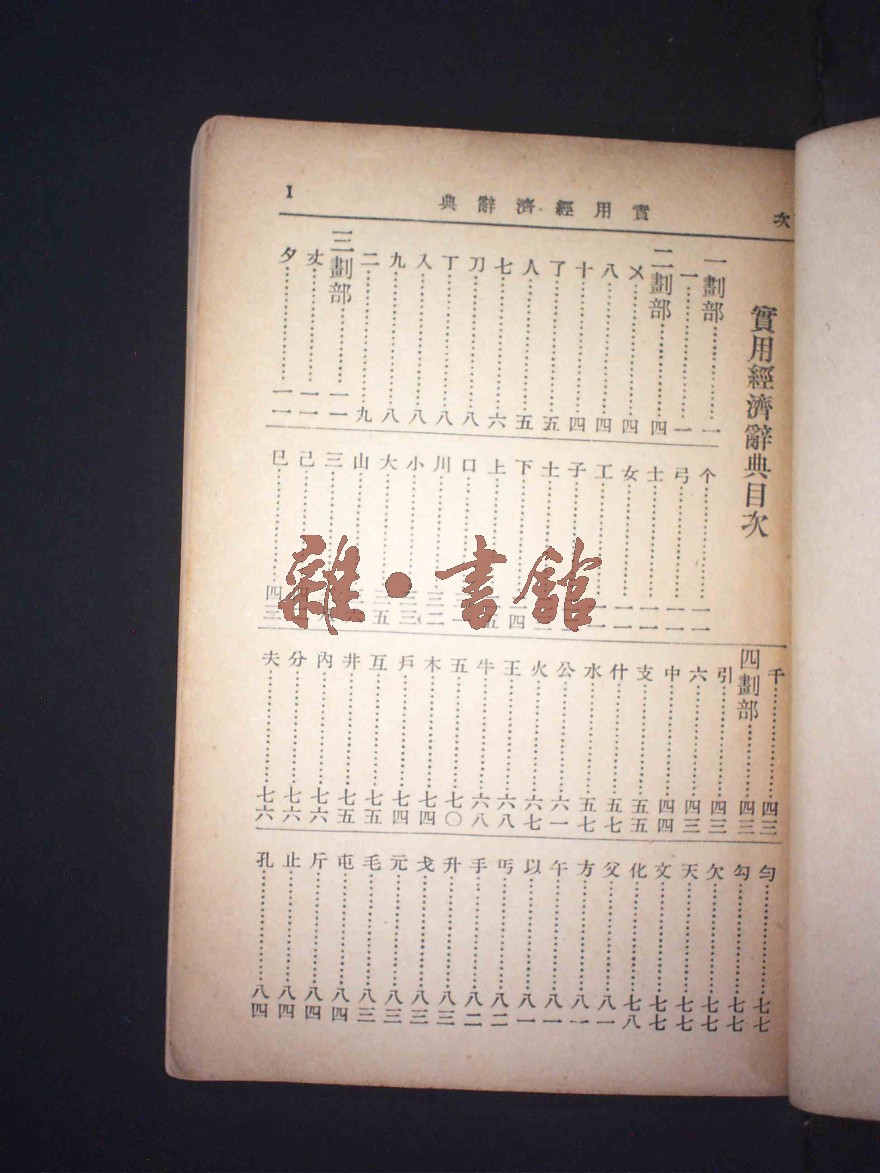 次
實用經濟辭典
1
實用經濟辭典目次
一劃部…………一
一…………一
二劃部…………四
㐅…………四
八…………四
十…………四
了…………五
人…………五
七…………六
刀…………八
丁…………八
入…………八
九…………八
二…………九
三劃部…………一一
丈…………一一
夕…………一一
个…………一一
弓…………一一
士…………一一
女…………一一
工…………一一
子…………
土…………
下…………一四
上…………
口…………
川…………
小…………
大…………
山…………
三…………
己…………
巳…………四三
千…………四三
四劃部…………四三
引…………四三
六…………四三
中…………四四
支…………五五
什…………五七
水…………五七
公…………六一
火…………六七
王…………六八
牛…………六八
五…………七〇
木…………七四
戶…………七四
互…………七五
井…………七五
內…………七六
分…………七六
夫…………七六
勻…………七七
勾…………七七
欠…………七七
天…………七七
文…………七七
化…………七八
父…………八一
方…………八一
午…………八一
以…………八一
丐…………八二
手…………八二
升…………八三
戈…………八三
元…………八三
毛…………八三
屯…………八四
斤…………八四
止…………八四
孔…………八四
雜·書館